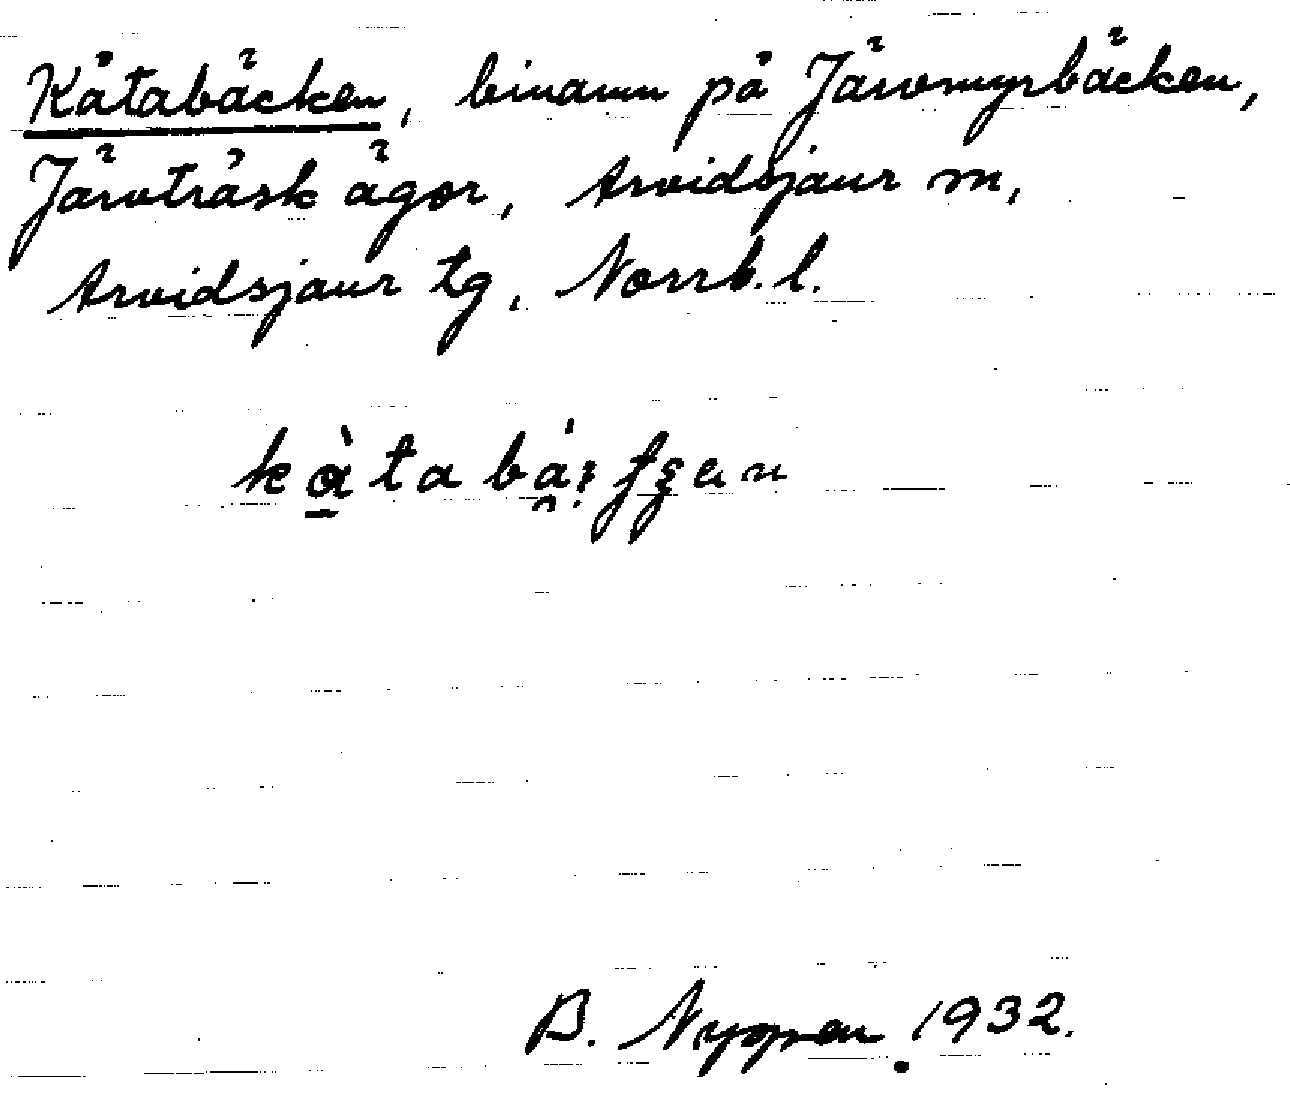 Kåtabäcken, binamn på Järvmyrbäcken,
Järvträsk ägor, Arvidsjaur sn,
Arvidsjaur tg, Norrb. l.
B. Nyppen 1932.